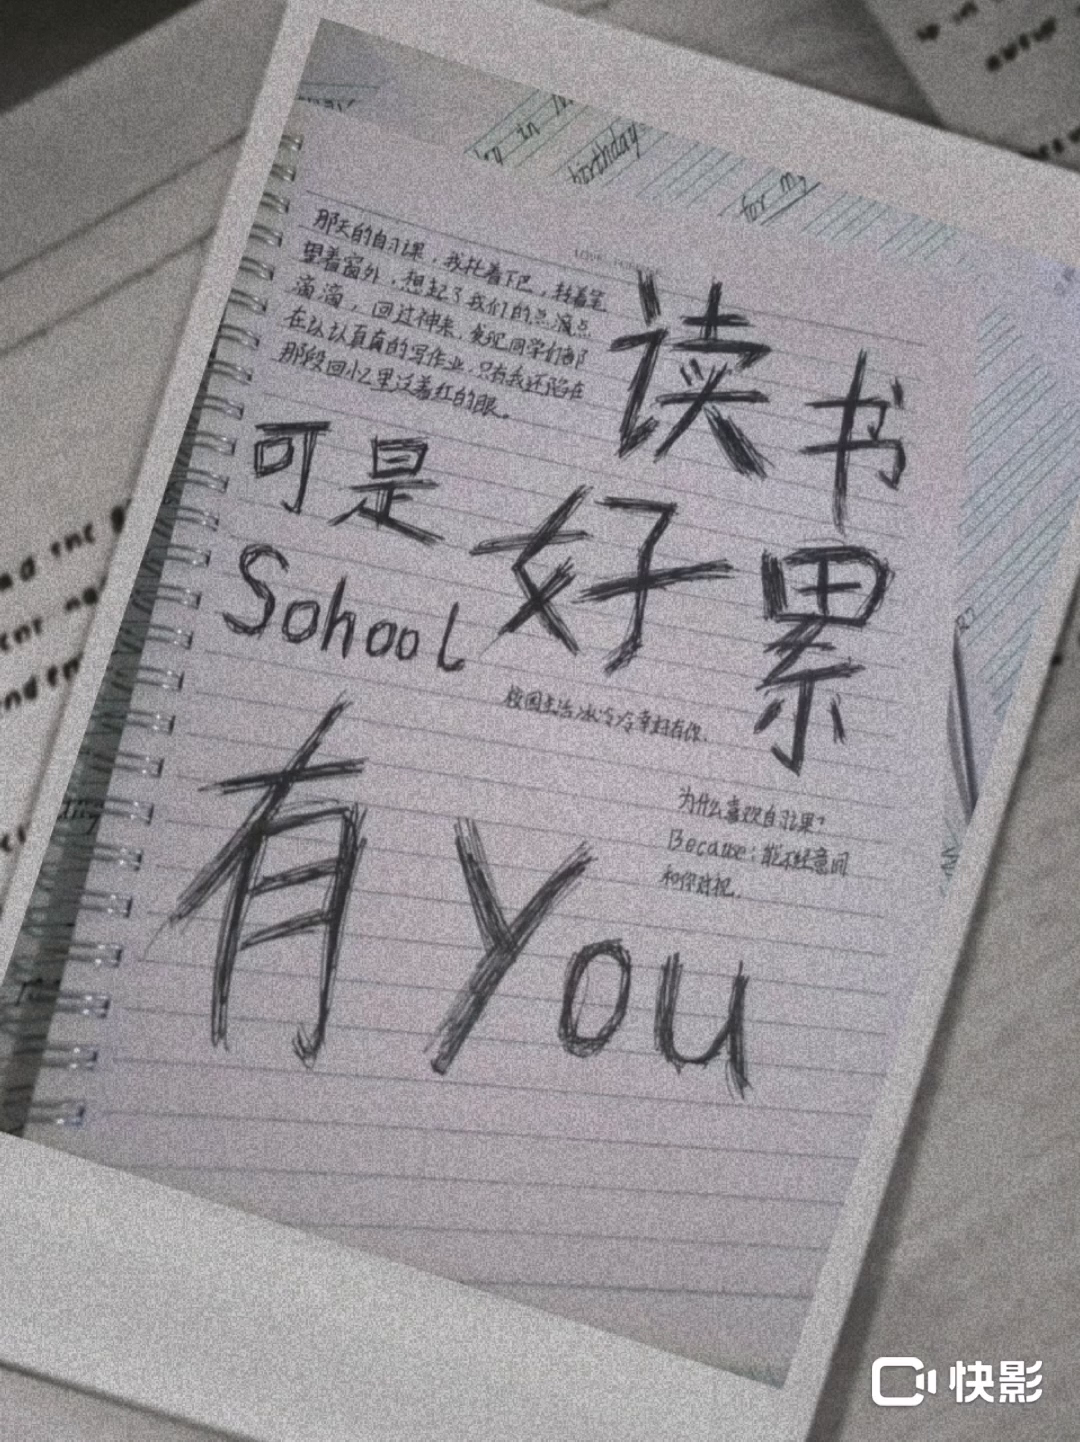 birthday
for my
那天的自习课，我托着下巴，转着笔
望着窗外，想起了我们的点滴点
滴滴，回过神来，发现同学们都
在认认真真的写作业，只有我还陷在
那段回忆里泛着红的眼。
读书
可是
好累
Sohool
校园生活冰冷冷幸好有你.
有 You
为什么喜欢自习课?
Because:能不经意间
和你对视.
快影